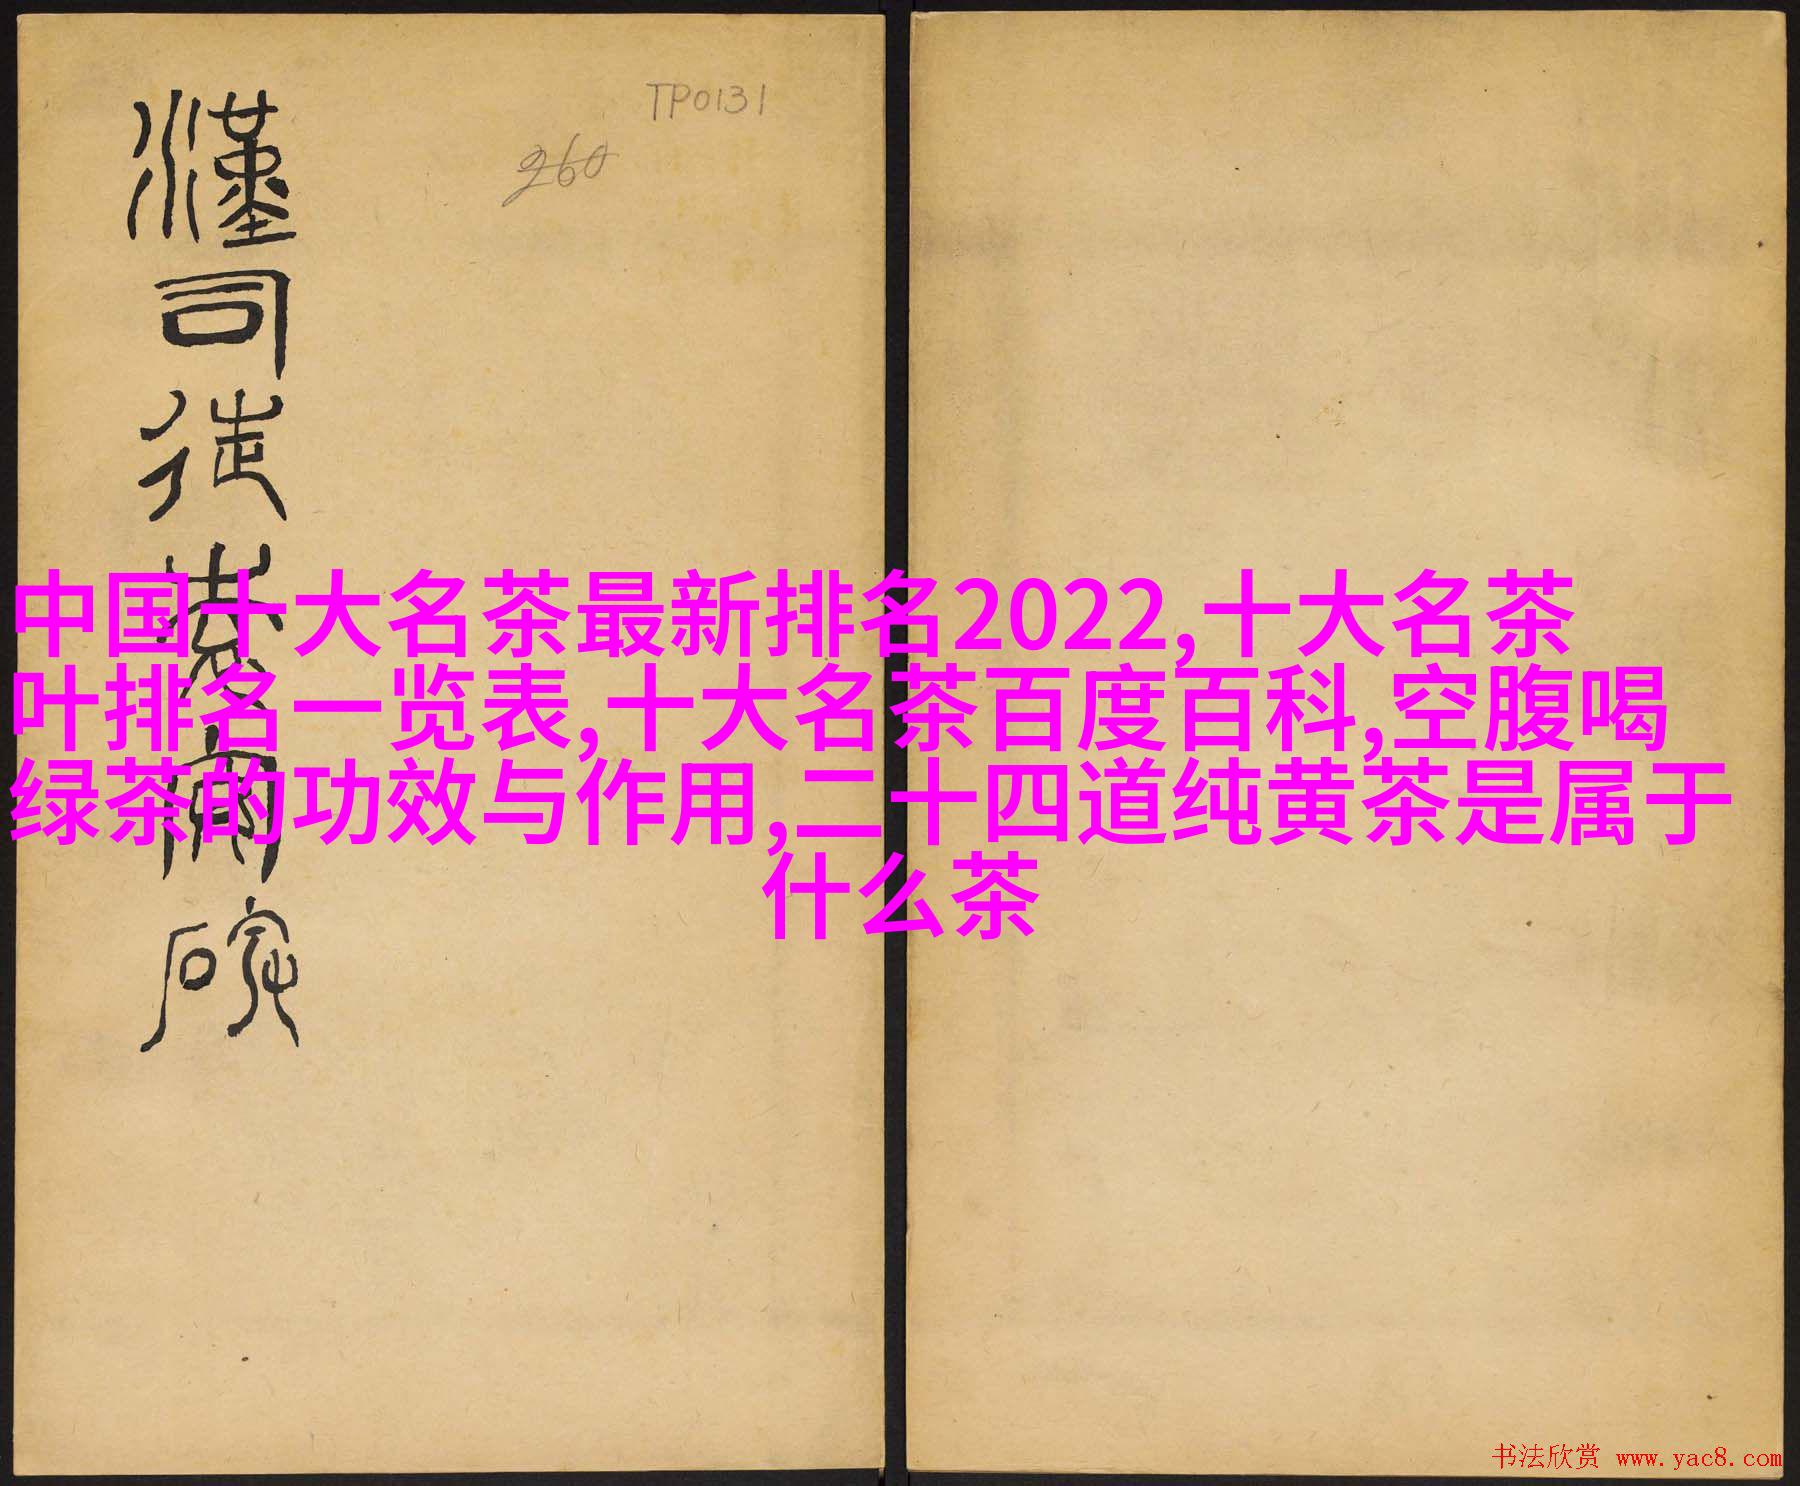 TP0131
260
漢司徒袁敞碑
中国十大名茶最新排名2022,十大名茶
叶排名一览表,十大名茶百度百科,空腹喝
绿茶的功效与作用,二十四道纯黄茶是属于
什么茶
书法欣赏 www.yac8.com